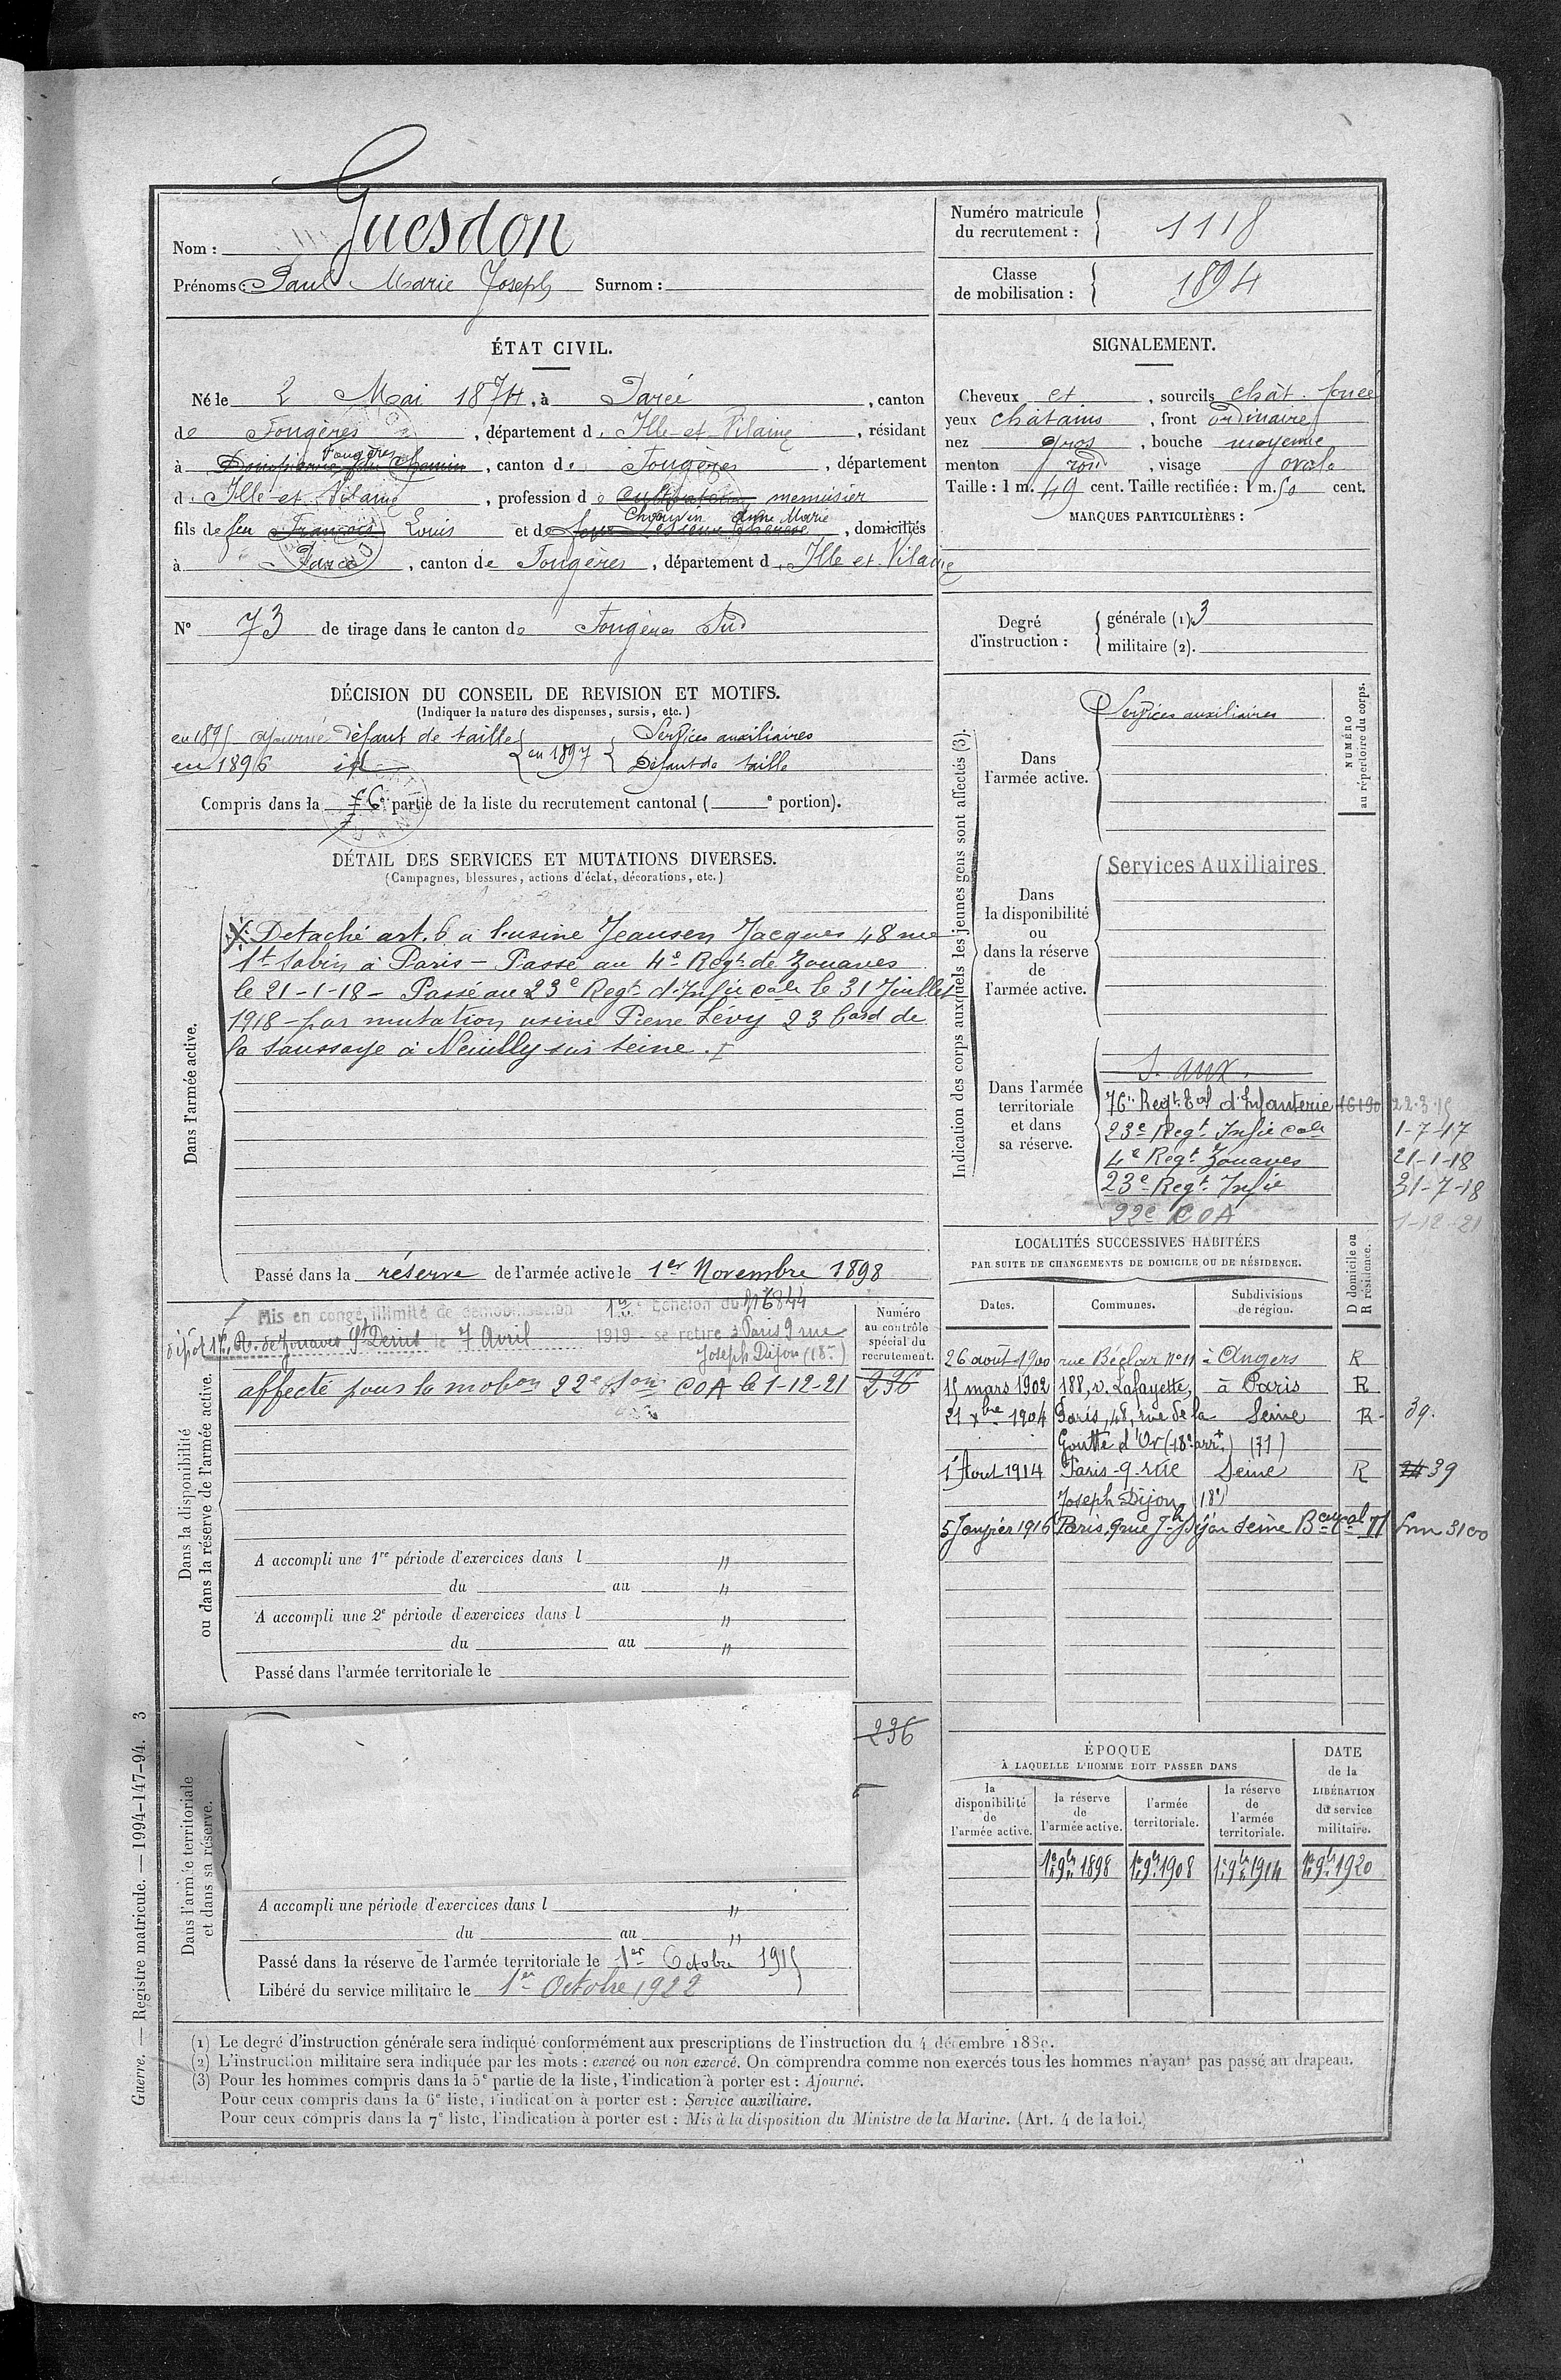 Nom : Guesdon
Prénoms : Paul Marie Joseph Surnom :
Numéro matricule du recrutement : 1118
Classe de mobilisation : 1894
ÉTAT CIVIL.
Né le 2 Mai 1874, à Parcé, canton
de Fougères, département d. Ille-et-Vilaine, résidant
Fougères
à Dompierre du Chemin, canton de Fougères, département
d. Ille-et-Vilaine, profession de cultivateur menuisier
Chauvin Anne Marie
fils de feu François Louis et de, domiciliés
à Parcé, canton de Fougères, département d. Ille et Vilaine
N° 73 de tirage dans le canton de Fougères Sud
DÉCISION DU CONSEIL DE REVISION ET MOTIFS.
(Indiquer la nature des dispenses, sursis, etc.)
en 1895 ajourné défaut de taille
en 1896 id
en 1897
Services auxiliaires
Défaut de taille
Compris dans la 6e partie de la liste du recrutement cantonal ( e portion).
DÉTAIL DES SERVICES ET MUTATIONS DIVERSES.
(Campagnes, blessures, actions d'éclat, décorations, etc.)
Dans l'armée active.
Detaché art. 6 à l'usine Jeansen Jacques 48 rue
St Sabin à Paris - Passé au 4e Regt de Zouaves
le 21-1-18 - Passé au 23e Regt d'Infie cale le 31 Juillet
1918 - par mutation usine Pierre Lévy 23 bard de
la Saussaye à Neuilly sur Seine.
Passé dans la réserve de l'armée active le 1er Novembre 1898
Mis en congé illimité de démobilisation 1er Echelon du N° 6844
dépôt R. de Zouaves St Denis le 7 Avril 1919 - se retire à Paris 9 rue
Joseph Dijon (18e)
affecté pour la mobon 22e Son COA le 1-12-21
Numéro au contrôle spécial du recrutement.
236
Dans la disponibilité ou dans la réserve de l'armée active.
A accompli une 1re période d'exercices dans l "
du au "
A accompli une 2e période d'exercices dans l "
du au "
Passé dans l'armée territoriale le
236
Dans l'armée territoriale et dans sa réserve.
A accompli une période d'exercices dans l "
du au "
Passé dans la réserve de l'armée territoriale le 1er Octobre 1915
Libéré du service militaire le 1er Octobre 1922
SIGNALEMENT.
Cheveux et, sourcils chât. foncé
yeux châtains, front ordinaire
nez gros, bouche moyenne
menton rond, visage ovale
Taille : 1 m. 49 cent. Taille rectifiée : 1 m. 50 cent.
MARQUES PARTICULIÈRES :
Degré d'instruction :
générale (1). 3
militaire (2).
Indication des corps auxquels les jeunes gens sont affectés (3).
NUMÉRO au répertoire du corps.
Dans l'armée active.
Services auxiliaires
Dans la disponibilité ou dans la réserve de l'armée active.
Services Auxiliaires
Dans l'armée territoriale et dans sa réserve.
S. aux.
76e Regt tal d'Infanterie 16190 22.3.15
23e Regt Infie cale 1-7-17
4e Regt Zouaves 21-1-18
23e Regt Infie 31-7-18
22e COA 1-12-21
LOCALITÉS SUCCESSIVES HABITÉES
PAR SUITE DE CHANGEMENTS DE DOMICILE OU DE RÉSIDENCE.
Dates. Communes. Subdivisions de région. D domicile ou R résidence.
26 août 1900 rue Béclar n° 11 à Angers R
15 mars 1902 188, r. Lafayette, à Paris R
21 xbre 1904 Paris, 48, rue de la Seine R 39.
Goutte d'Or (18e arrt)
1 Août 1914 Paris - 9 - rue Seine R 24 39
Joseph Dijon (18e)
5 Janvier 1916 Paris, 9 rue Jh Dijon Seine
ÉPOQUE
À LAQUELLE L'HOMME DOIT PASSER DANS
la disponibilité de l'armée active.
la réserve de l'armée active.
l'armée territoriale.
la réserve de l'armée territoriale.
DATE de la LIBÉRATION du service militaire.
1er 9bre 1898 1er 9bre 1908 1er 9bre 1914 1er 9bre 1920
(1) Le degré d'instruction générale sera indiqué conformément aux prescriptions de l'instruction du 4 décembre 1889.
(2) L'instruction militaire sera indiquée par les mots : exercé ou non exercé. On comprendra comme non exercés tous les hommes n'ayant pas passé au drapeau.
(3) Pour les hommes compris dans la 5e partie de la liste, l'indication à porter est : Ajourné.
Pour ceux compris dans la 6e liste, l'indication à porter est : Service auxiliaire.
Pour ceux compris dans la 7e liste, l'indication à porter est : Mis à la disposition du Ministre de la Marine. (Art. 4 de la loi.)
Guerre. — Registre matricule. — 1994-147-94. 3